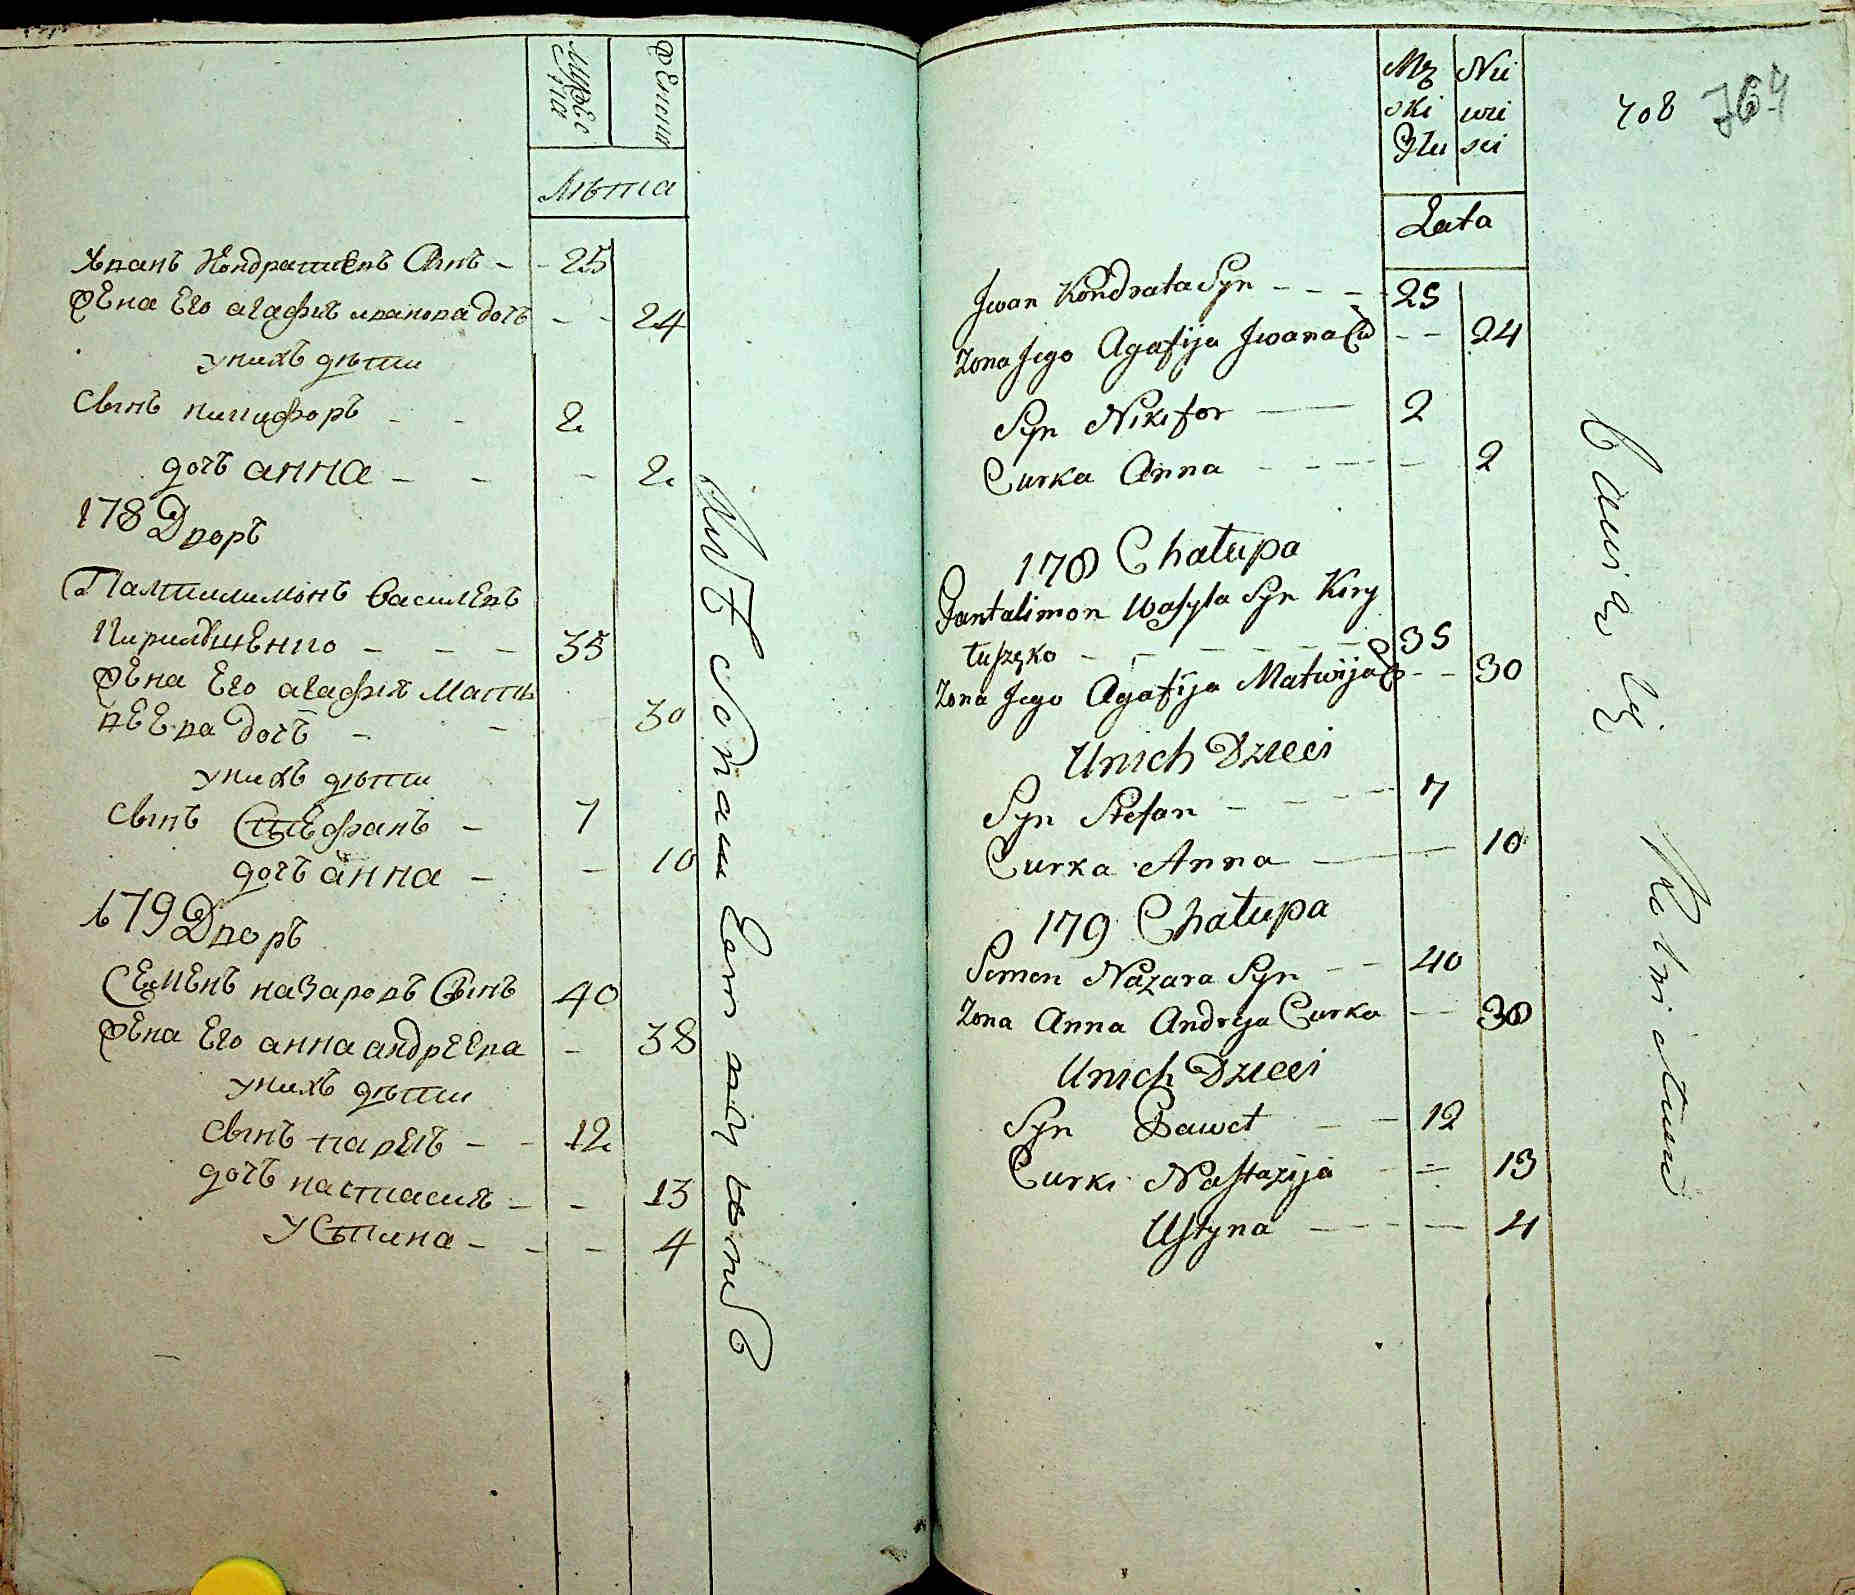 Мужеска
Женска
Лѣта
Иванъ Кондратиевъ Сынъ - - 25
Жена Его агафия иванова дочь - - 24
у нихъ дѣти
Сынъ никифоръ - - 2
дочь анна - - - 2
178 Дворъ
Пантилимонъ Василевъ
Кирилѣщенко - - - 35
Жена Его агафия Матв
веева дочь - - 30
у нихъ дѣти
сынъ Стефанъ - 7
дочь анна - - 10
179 Дворъ
Семенъ назаровъ Сынъ 40
Жена Его анна андреева - 38
у нихъ дѣти
сынъ павелъ - - 12
дочь настасия - - 13
Устина - - - 4
Mę Nie
ski wie
Płci sci
Lata
708 764
Jwan Kondrata Syn - - - - 25
Zona Jego Agafija Jwana Cu - - 24
Syn Nikifor - 2
Curka Anna - - - - - 2
178 Chałupa
Pantalimon Wasyla Syn Kiry
łuszęko - - - - - - 35
Zona Jego Agafija Matwija C - - 30
Unich Dzieci
Syn Stefan - - - - 7
Curka Anna - - 10
179 Chałupa
Semen Nazara Syn - - 40
Zona Anna Andreja Curka - - 38
Unich Dzieci
Syn Paweł - - 12
Curki Nastazija - = 13
Ustyna - - - - 4